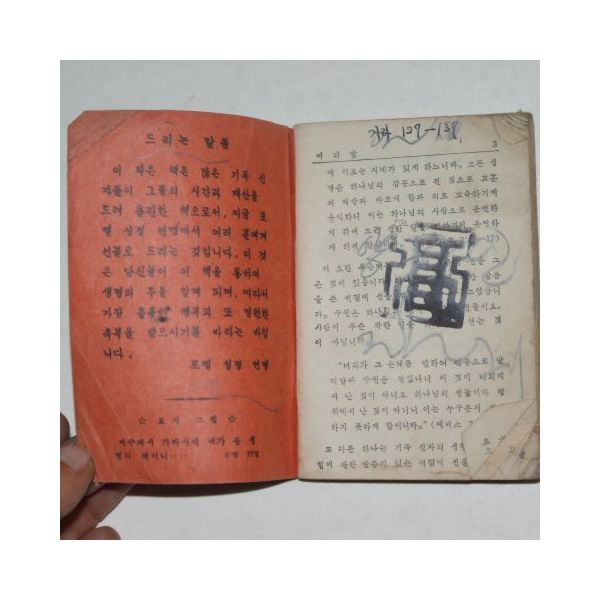 드리는 말씀
이 작은 책은 많은 기독 신
자들이 그들의 시간과 재산을
드려 출판한 책으로서, 지금 포
켙 성경 연맹에서 여러 분에게
선물로 드리는 것입니다. 이 것
은 당신들이 이 책을 통하여
생명의 주를 알게 되며, 따라서
가장 훌륭한 행복과 또 영원한
축복을 받으시기를 바라는 바입
니다.
포켙 성경 연맹
☆ 표지 그림 ☆
예수께서 가라사대 내가 곧 생
명의 떡이니‥‥ 6장 35절
127-137
머 리 말 3
게 이르는 지혜가 있게 하느니라。 모든 성
경은 하나님의 감동으로 된 것으로 교훈
과 책망과 바르게 함과 의로 교육하기에
유익하니 이는 하나님의 사람으로 온전하
게 하며 모든 선한
17)
은 것이 있습니다
을 쓴 귀절에 선을
다。 구원은 하나님
사람이 무슨 착한 일을 얻는 것
이 아닙니다
"너희가 그 은혜를 인하여 믿음으로 말
미암아 구원을 얻었나니 이 것이 너희게
서 난 것이 아니요 하나님의 선물이다 행
위에서 난 것이 아니니 이는 누구든지
하지 못하게 함이니라" (에베소
또 다른 하나는 기독 신자의 생활
힘에 관한 말씀이 있는 귀절에 선을